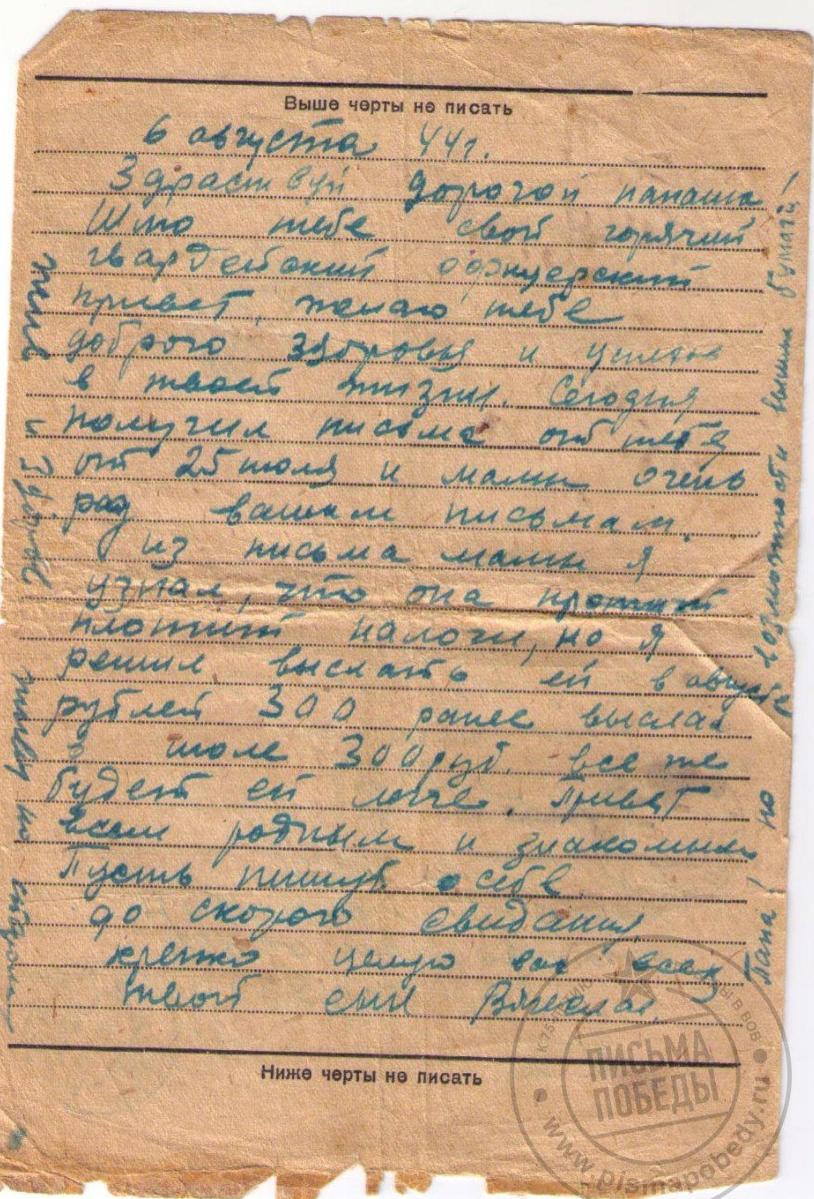 Выше черты не писать
6 августа 44г.
Здраствуй дорогой папаша
Шлю тебе свой горячий
гвардейский офицерский
привет, желаю тебе
доброго здоровья и успеха
в твоей жизни. Сегодня
получил письма от тебя
от 25 июля и мамы очень
рад вашим письмам.
Из письма мамы я
узнал, что она
платит налоги, но я
решил выслать ей в августе
рублей 300 ранее выслал
в июле 300 руб. все же
будет ей легче. Привет
всем родным и знакомым
Пусть пишут о себе.
до скорого свидания
крепко целую вас всех
твой сын
Ниже черты не писать
Папа, по возможности вышли бумаги!
жив и здоров
ПИСЬМА
ПОБЕДЫ
www.pismapobedy.ru